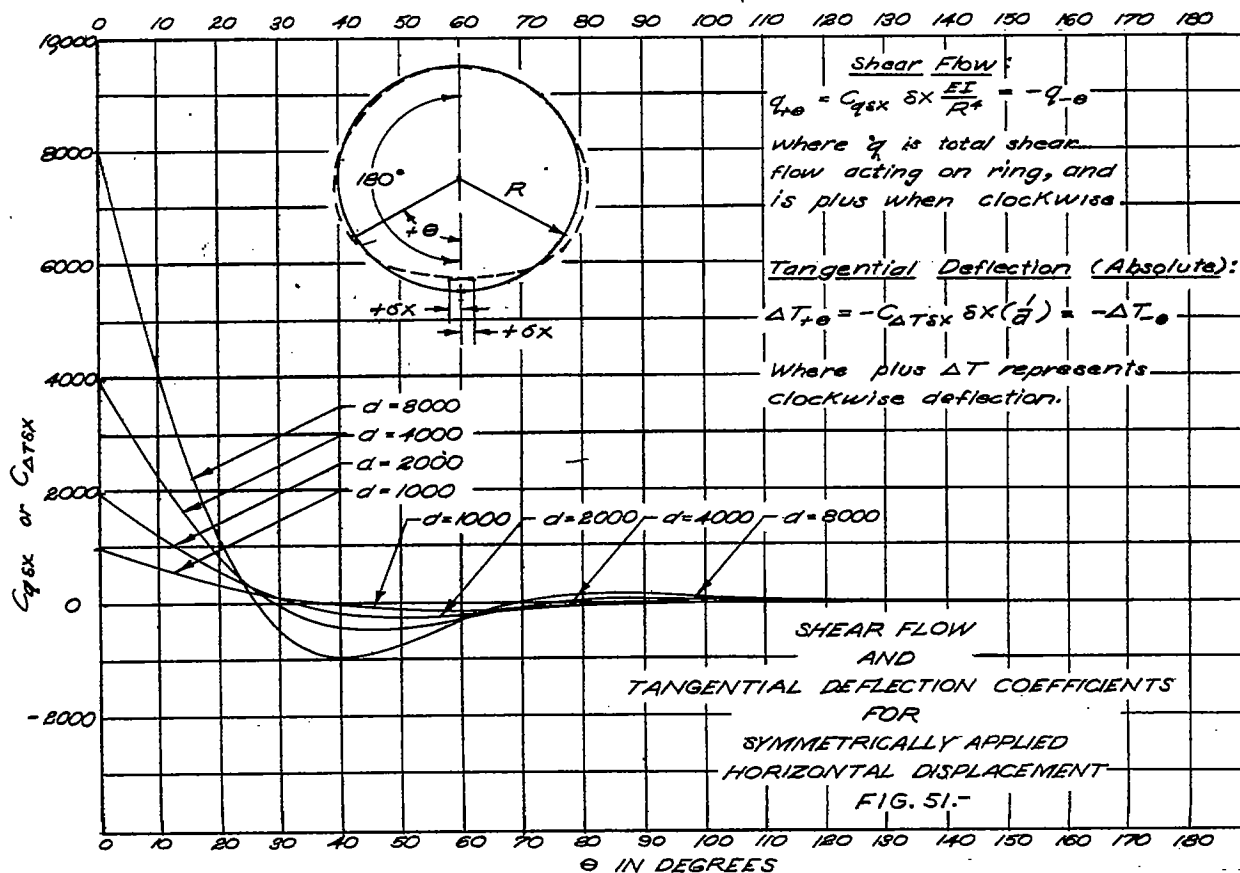 0 10 20 30 40 50 60 70 80 90 100 110 120 130 140 150 160 170 180
10,000
8000
6000
4000
2000
0
-2000
C_qδx or C_ΔTδx
180°
R
+θ
+δx
+δx
Shear Flow:
q_+θ = C_qδx δx EI/R⁴ = -q_-θ
where q is total shear
flow acting on ring, and
is plus when clockwise.
Tangential Deflection (Absolute):
ΔT_+θ = -C_ΔTδx δx(1/d) = -ΔT_-θ
Where plus ΔT represents
clockwise deflection.
d=8000
d=4000
d=2000
d=1000
d=1000 d=2000 d=4000 d=8000
SHEAR FLOW
AND
TANGENTIAL DEFLECTION COEFFICIENTS
FOR
SYMMETRICALLY APPLIED
HORIZONTAL DISPLACEMENT
FIG. 51.-
0 10 20 30 40 50 60 70 80 90 100 110 120 130 140 150 160 170 180
θ IN DEGREES